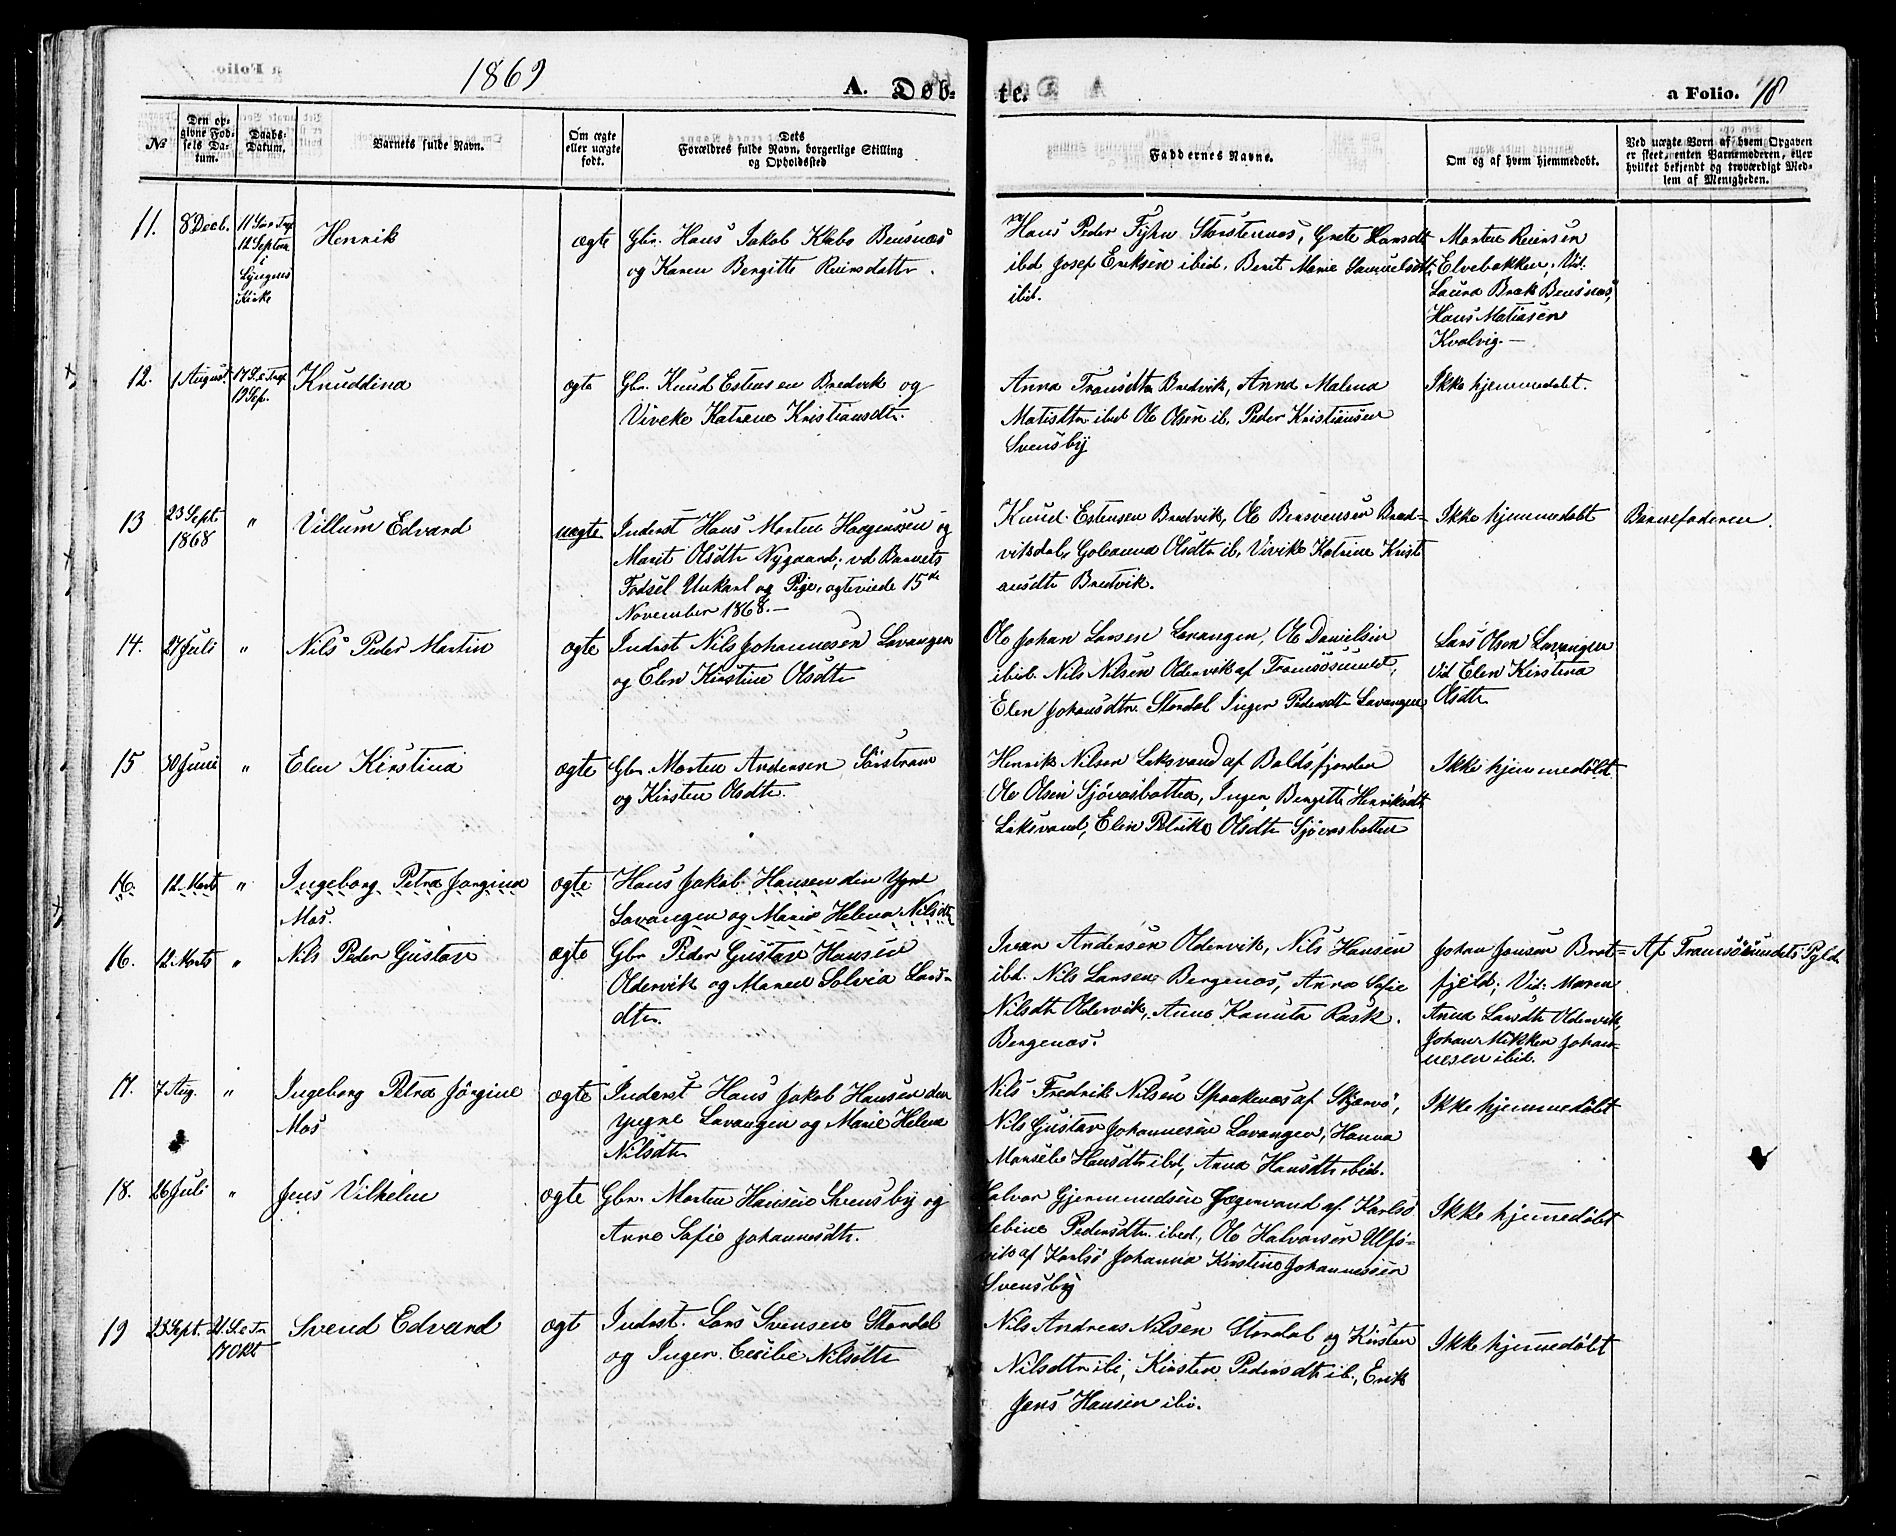 1869
A. Døb-
te.
a Folio. 18
№
Den op-
givne Fød-
sels Da-
tum.
Daabs-
Datum.
Barnets fulde Navn.
Om ægte
eller uægte
født.
Dets
Forældres fulde Navn, borgerlige Stilling
og Opholdssted
Faddernes Navne.
Om og af hvem hjemmedøbt.
Ved uægte Børn af hvem Opgaven
er skeet, enten Barnemoderen, eller
hvilket bekjendt og troværdigt Med-
lem af Menigheden.
11. 8 Decb.
12 Septem
i
Lyngens
Kirke
Henrik
ægte
Gbr. Hans Jakob Bensnæs
og Karen Bergitte Reiersdattr.
Hans Peder Fyhn Storstennes, Grete Hansdt
ibd. Josef Eriksen ibid. Berit Marie Samuelsdt.
ibid.
Morten Reiersen
Elvebakken; Vid:
Laura Bræk Bensnæs,
Hans Matiasen
Kvalvig.—
12. 1 August. 17 S. e Tref.
19 Sep.
Knuddina
ægte
Gbr. Knud Estensen Bredvik og
Viveke Katrine Kristiansdtr.
Anna Transdtr Bredvik, Anna Malena
Matisdtr ibid Ole Olsen ib. Peder Kristiansen
Svensby
Ikke hjemmedøbt.
13 23 Sept.
1868
"
Villum Edvard
uægte
Inderst Hans Morten Haagensen og
Marit Olsdtr Nygaard; vd Barnets
Fødsel Unkarl og Pige, ægteviede 15de
November 1868.—
Knud Estensen Bredvik, Ole Bersvensen Bred-
viksdal, Goleanna Olsdtr ib, Vivike Katrine Kristi
ansdtr Bredvik.
Ikke hjemmedøbt
Barnefaderen.
14. 27 Juli "
Nils Peder Martin
ægte
Inderst Nils Johannesen Lavangen
og Elen Kirstine Olsdtr
Ole Johan Larsen Lavangen, Ole Danielsen
ibid. Nils Nilsen Oldervik af Tromsøsundet,
Elen Johansdtr. Stordal Inger Pedersdtr Lavangen
Lars Olsen Lavangen
Vid Elen Kirstina
Olsdtr
15 30 Juni "
Elen Kirstina
ægte
Gbr Morten Andersen Sørstrøm
og Kirsten Olsdtr.
Henrik Nilsen Laksvand af Balsfjorden
Ole Olsen Sjøvasbotten, Inger Bergitte Henriksdtr
Laksvand, Elen Petrike Olsdtr Sjøvasbotten
Ikke hjemmedøbt
16. 12 Marts "
Ingeborg Petra Jørgina
Mos.
ægte
Hans Jakob Hansen den Yngre
Lavangen og Marie Helena Nilsdtr
16. 12 Marts "
Nils Peder Gustav
ægte
Gbr Peder Gustav Hansen
Oldervik og Maren Solvia Lars-
dtr.
Ivar Andersen Oldervik, Nils Hansen
ibd. Nils Larsen Bergenæs, Anna Sofie
Nilsdtr Oldervik, Anne Kanuta Rask
Bergenæs.
Johan Jonsen Brat-
fjeld; Vid: Maren
Anna Larsdtr Oldervik,
Johan Mikkel Johan-
nesen ibid.
Af Tromsøsundets Pgld
17. 7 Aug. "
Ingeborg Petra Jørgine
Mos
ægte
Inderst Hans Jakob Hansen den
yngre Lavangen og Marie Helene
Nilsdtr
Nils Fredrik Nilsen Spaakenæs af Skjærvø,
Nils Gustav Johannesen Lavangen, Hanna
Hansdtr ibd, Anna Hansdtr ibid.
Ikke hjemmedøbt
18. 26 Juli "
Jens Vilhelm
ægte
Gbr. Morten Hansen Svensby og
Anne Sofie Johannesdtr.
Halvor Gjermundsen Jægervand af Karlsø
Pedersdtr. ibid, Ole Halvorsen Ulfs-
vik af Karlsø Johanna Kirstine Johannessen
Svensby
Ikke hjemmedøbt
19 23 Sept. 21. S. e Tr
17 Okt
Svend Edvard
ægt
Inderst. Lars Svensen Stordal
og Inger Cecilie Nilsdtr
Nils Andreas Nilsen Stordal og Kirsten
Nilsdtr ibi, Kirsten Pedersdtr ib., Erik
Jens Hansen ibi.
Ikke hjemmedøbt